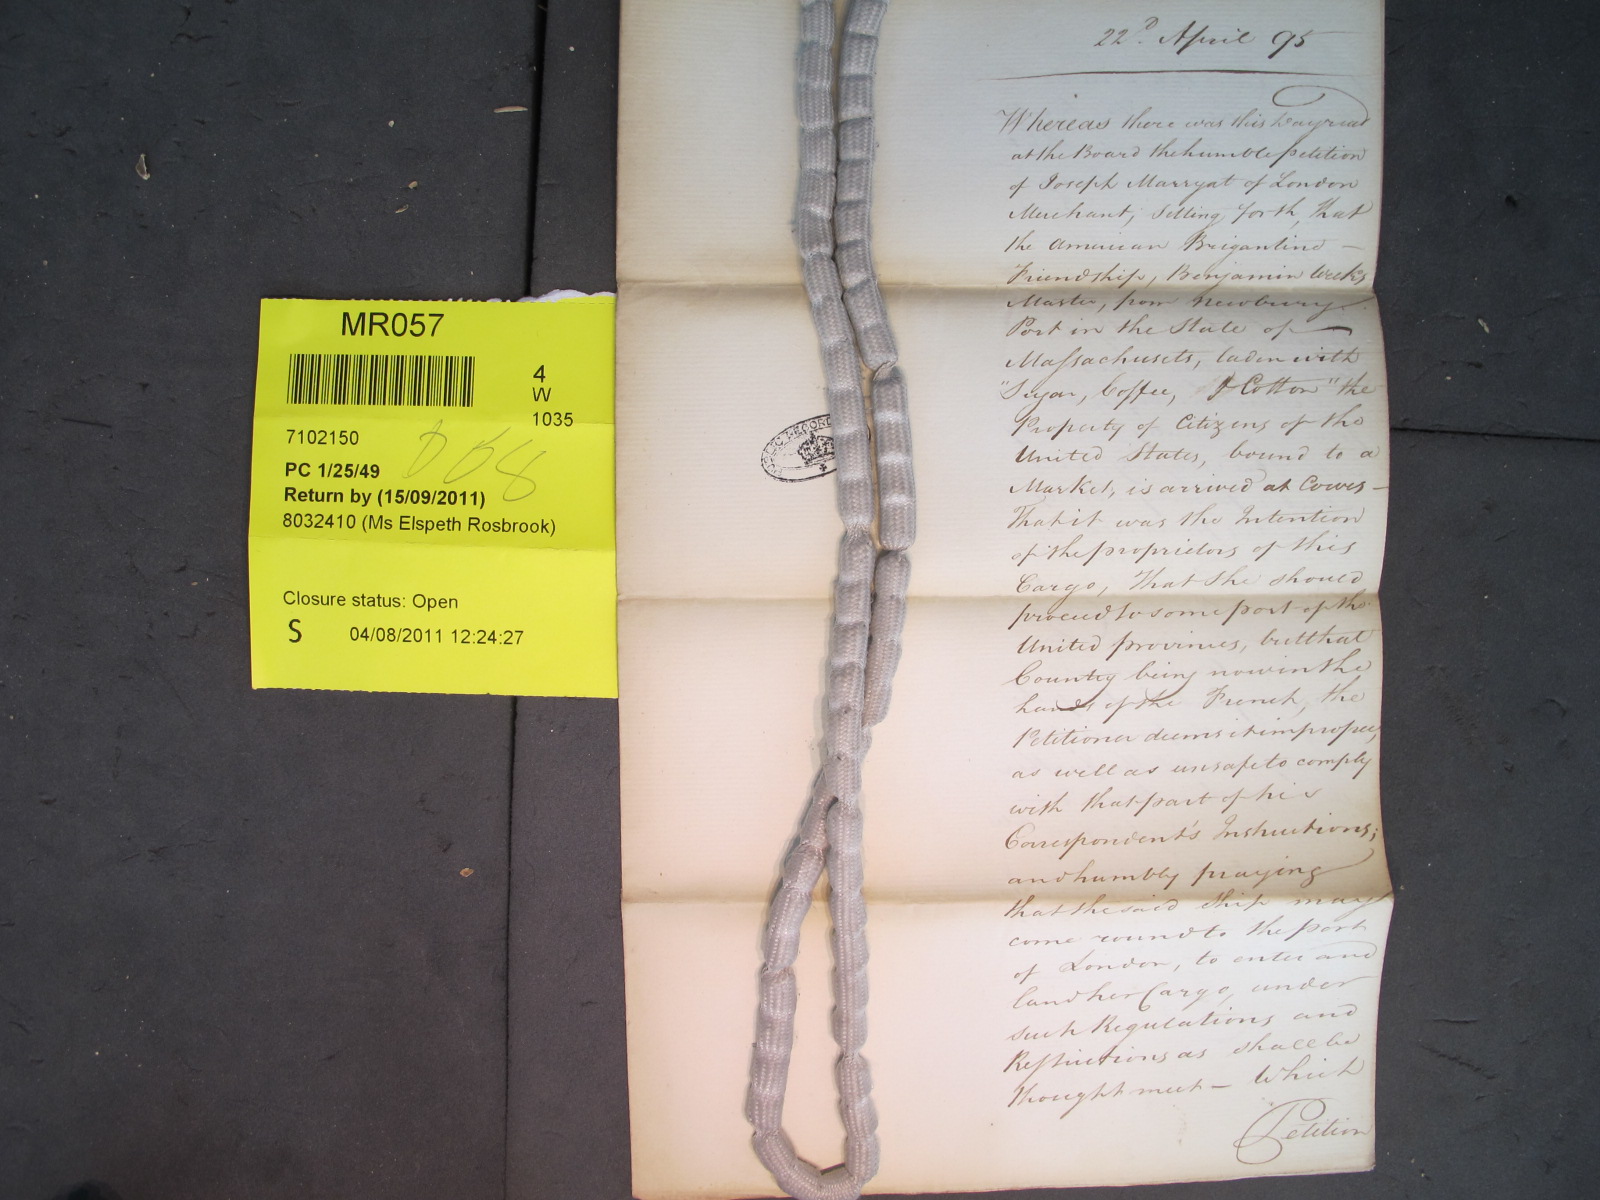 MR057
4
W
1035
7102150
PC 1/25/49
Return by (15/09/2011)
8032410 (Ms Elspeth Rosbrook)
Closure status: Open
S 04/08/2011 12:24:27
PUBLIC RECORD
22d. April 95
Whereas there was this Day read
at the Board the humble petition
of Joseph Marryat of London
Merchant, setting forth, that
the American Brigantine —
Friendship, Benjamin Weeks
Master, from Newbury
Port in the State of —
Massachusets, laden with
"Sugar, Coffee, & Cotton" the
Property of Citizens of the
United States, bound to a
Market, is arrived at Cowes —
That it was the Intention
of the proprietors of this
Cargo, that she should
proceed to some port of the
United provinces, but that
Country being now in the
hands of the French, the
Petitioner deems it improper,
as well as unsafe to comply
with that part of his
Correspondent's Instructions;
and humbly praying
that the said Ship may
come round to the port
of London, to enter and
land her Cargo, under
such Regulations and
Restrictions as shall be
thought meet — Which
Petition